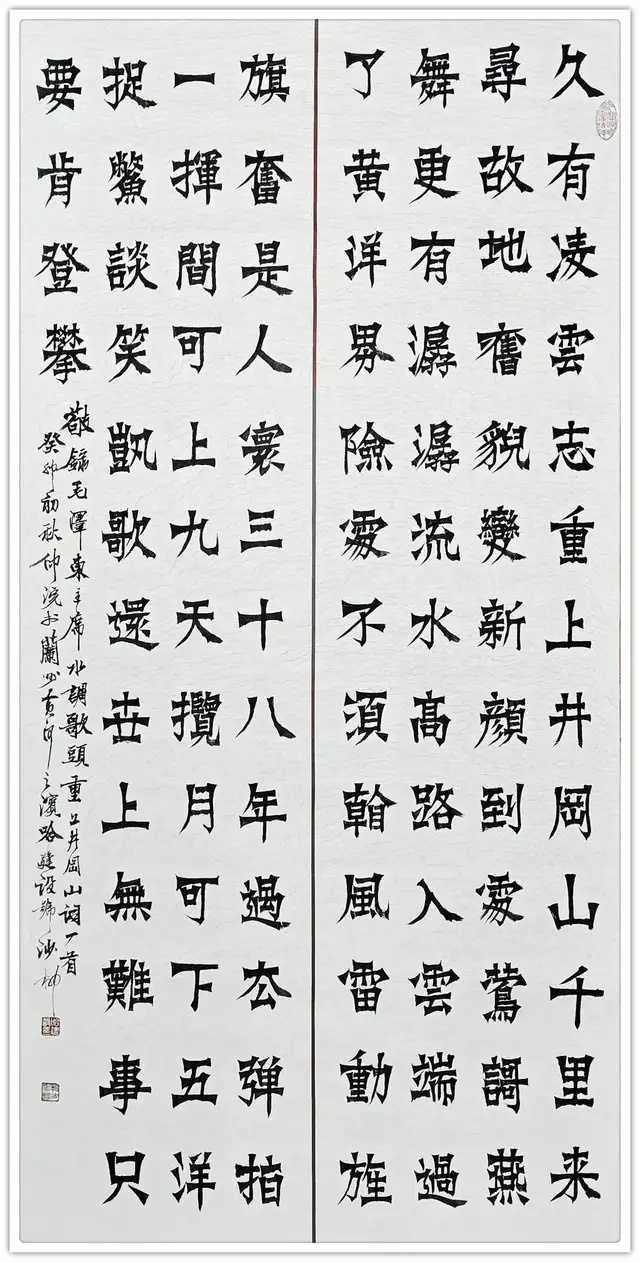 久有凌雲志重上井岡山千里来
尋故地舊貌變新顔到處鶯謌燕
舞更有潺潺流水高路入雲端過
了黄洋界險處不須翰風雷動旌
旗奮是人寰三十八年過去弹指
一揮間可上九天攬月可下五洋
捉鱉談笑凱歌還世上無難事只
要肯登攀
敬錄毛澤東主席水調歌頭重上井岡山詞一首
癸卯初秋仲浣於蘭州黄河之濱